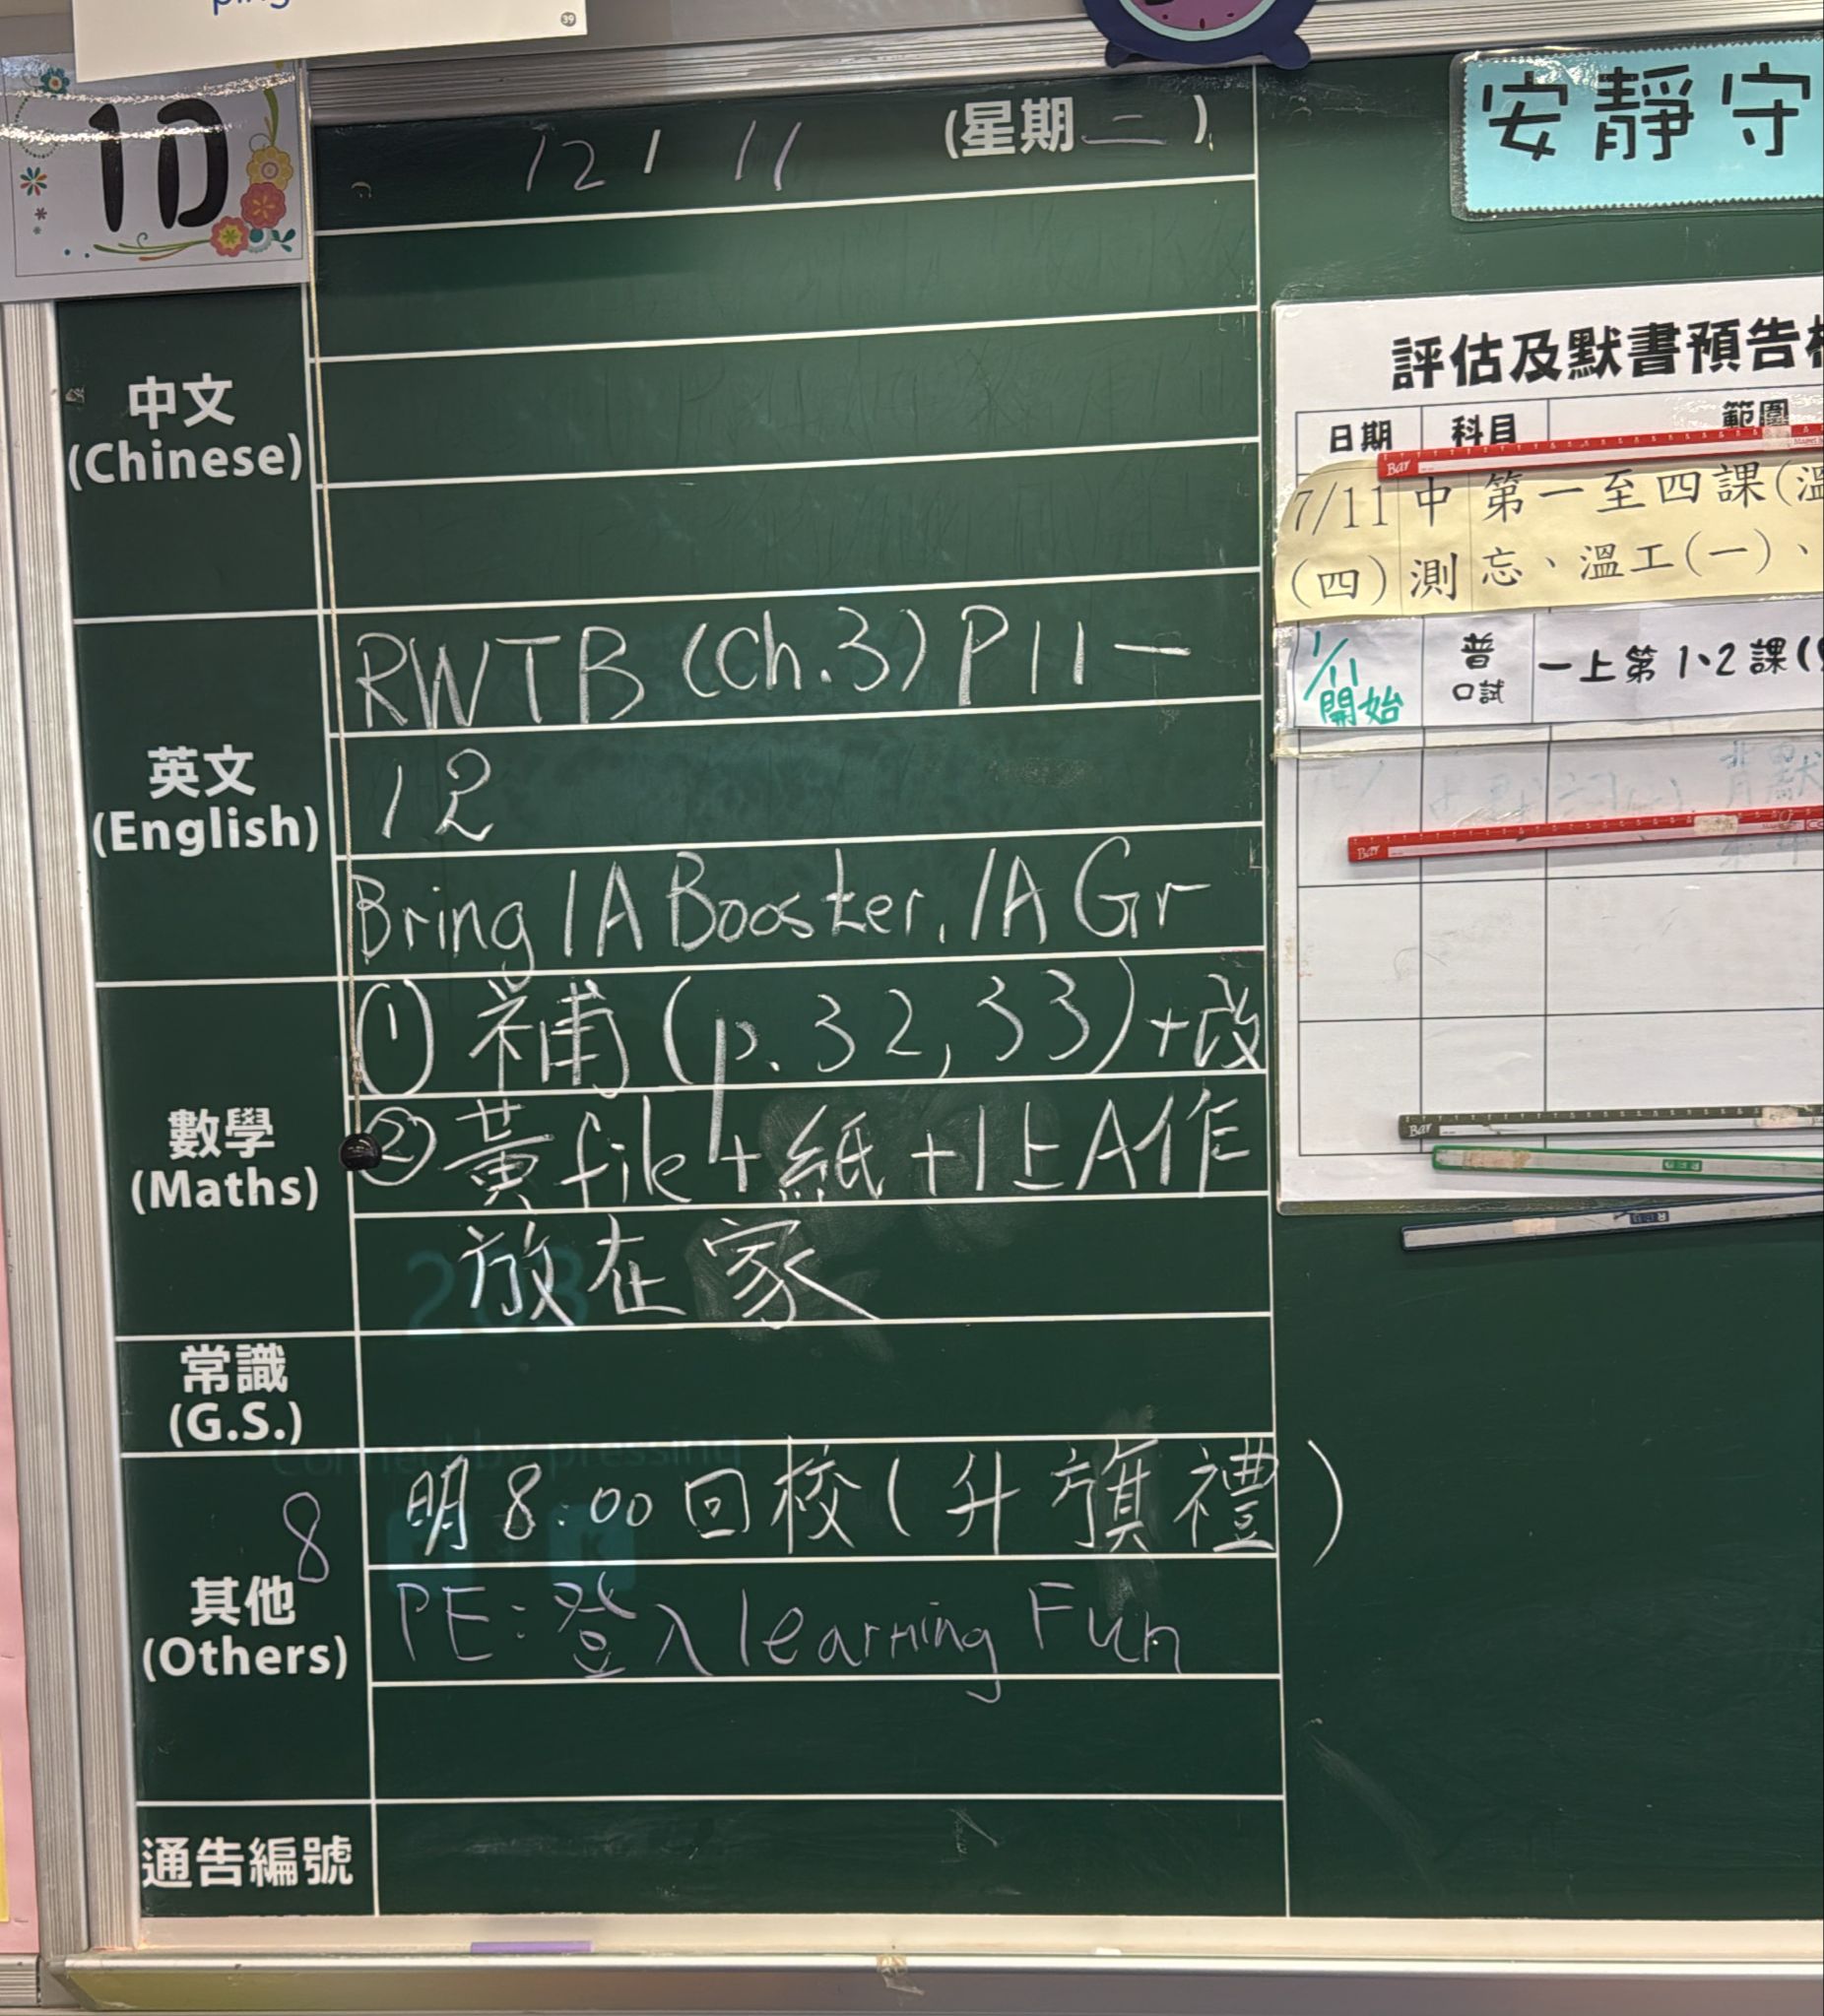 39
1D
12 / 11 (星期二)
安靜守
中文
(Chinese)
英文
(English)
RWTB (Ch.3) P11-
12
Bring 1A Booster, 1A Gr
數學
(Maths)
① 補 (p.32, 33)+改
② 黃file+紙+1上A作
放在家
常識
(G.S.)
其他
(Others)
8
明8:00回校(升旗禮)
PE:登入learning Fun
通告編號
評估及默書預告
日期 科目 範圍
7/11 中 第一至四課(溫
(四) 測 忘、溫工(一)、
1/11 開始 普 口試 一上第1、2課(